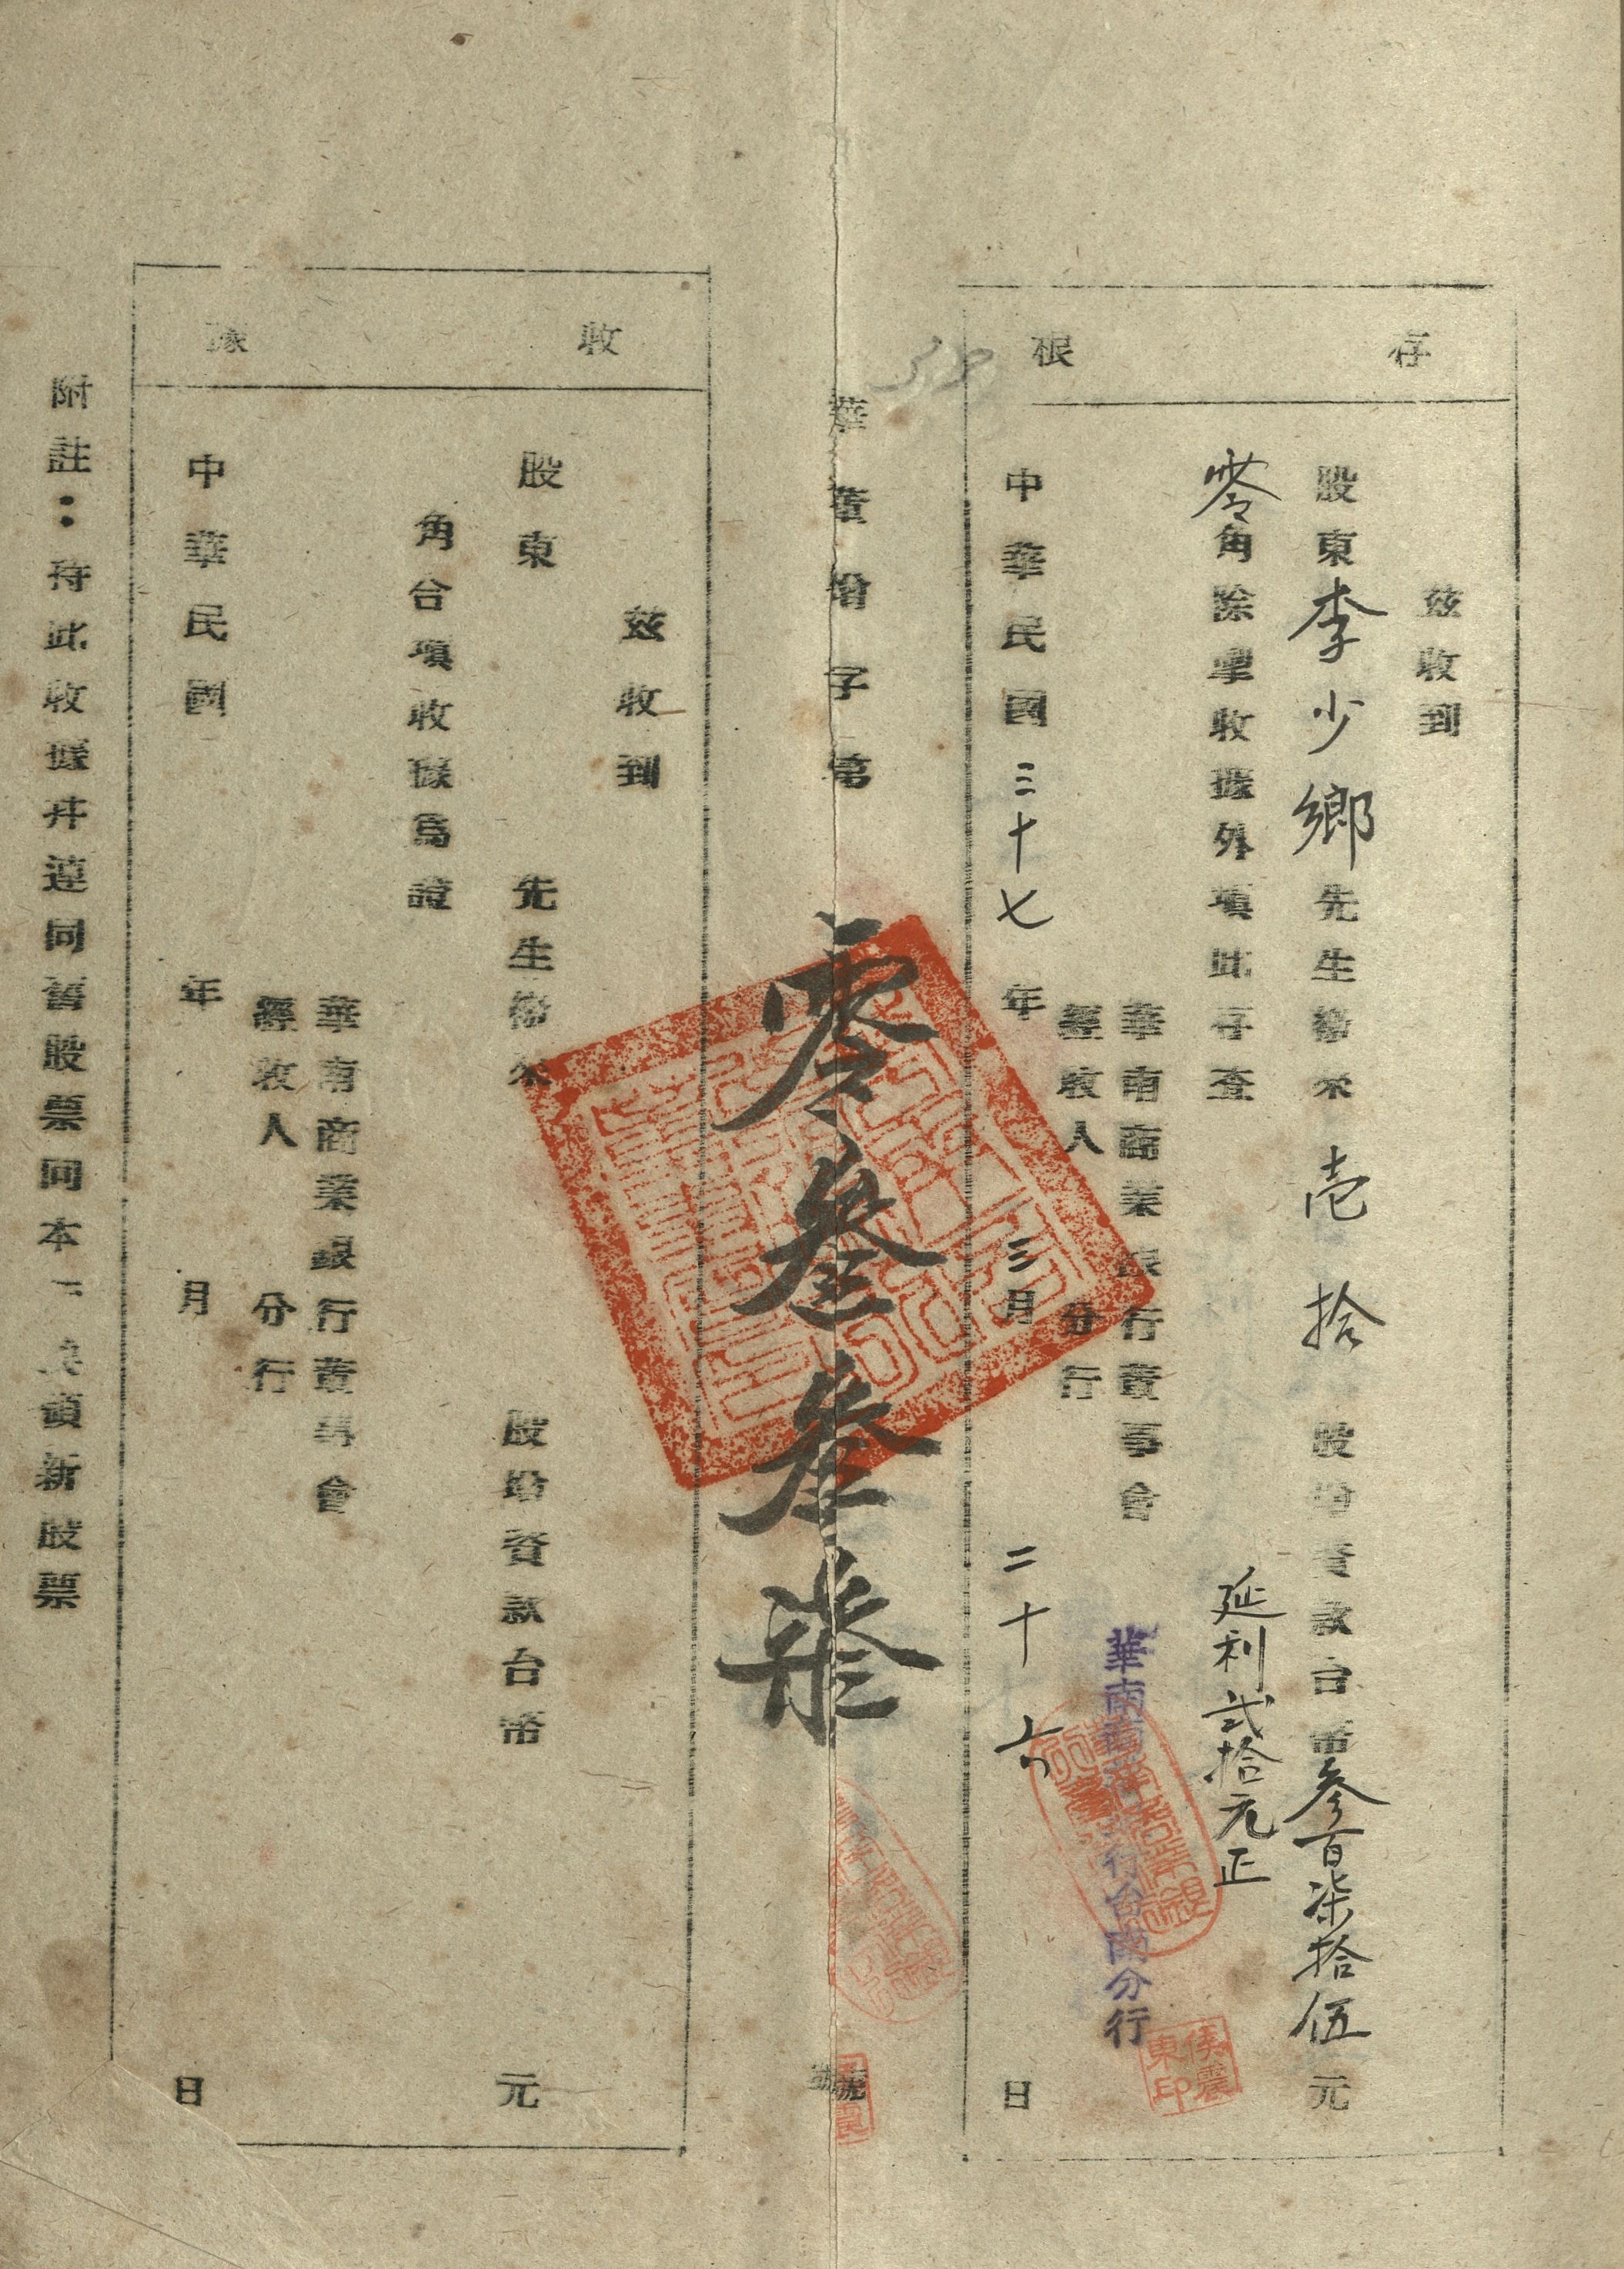 存根
茲收到
股東李少鄉先生繳來壹拾股增資款台幣叁百柒拾伍元
零角除掣收據外項此存查
延利弍拾元正
華南商業銀行董事會
華南商業銀行台南分行
經收人分行
侯震東印
中華民國三十七年三月二十六日
華董增字第零叁叁柒號
收據
茲收到
股東先生繳來股增資款台幣元
角合項收據為證
華南商業銀行董事會
經收人分行
中華民國年月日
附註：持此收據并連同舊股票同本行換領新股票